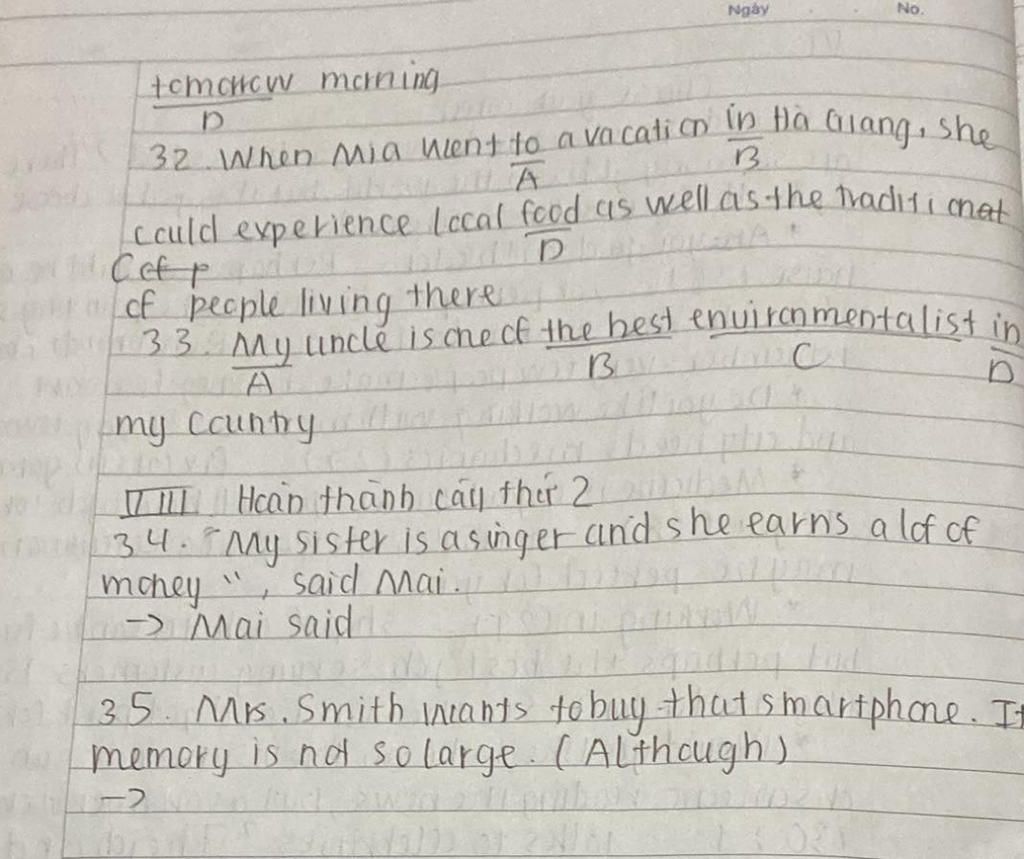 Ngày . . No.
tomorrow morning
D
32. When Mia went to a vacation in Hà Giang, she
A B
could experience local food as well as the traditional
D
C of p
of people living there
33. My uncle is one of the best environmentalist in
A B C D
my country
VIII Hoàn thành câu thứ 2
34. "My sister is a singer and she earns a lot of
money", said Mai.
→ Mai said
35. Mrs. Smith wants to buy that smartphone. It
memory is not so large. (Although)
→